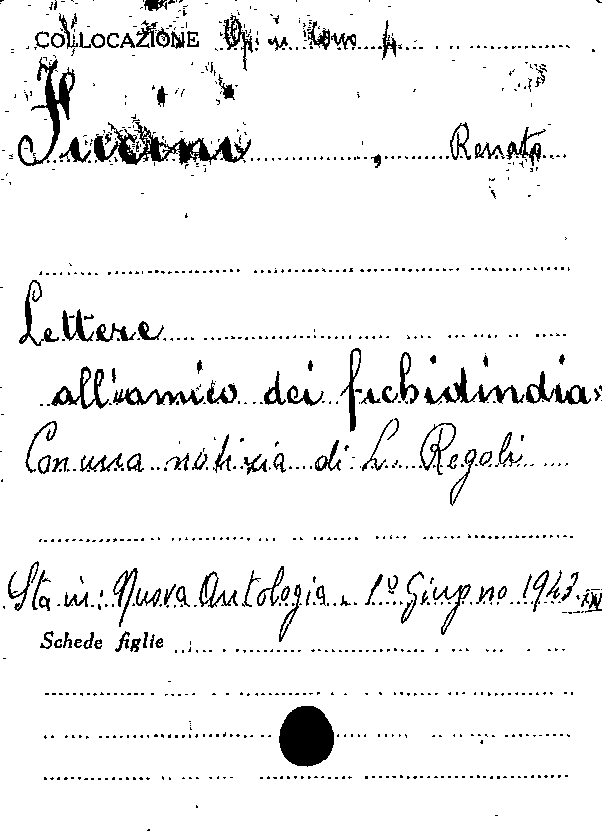 COLLOCAZIONE Op. in Cons
Fucini, Renato
Lettere
all'«amico dei fichidindia»
Con una notizia di L. Regoli
Sta in: Nuova Antologia. 1º Giugno 1943.
Schede figlie